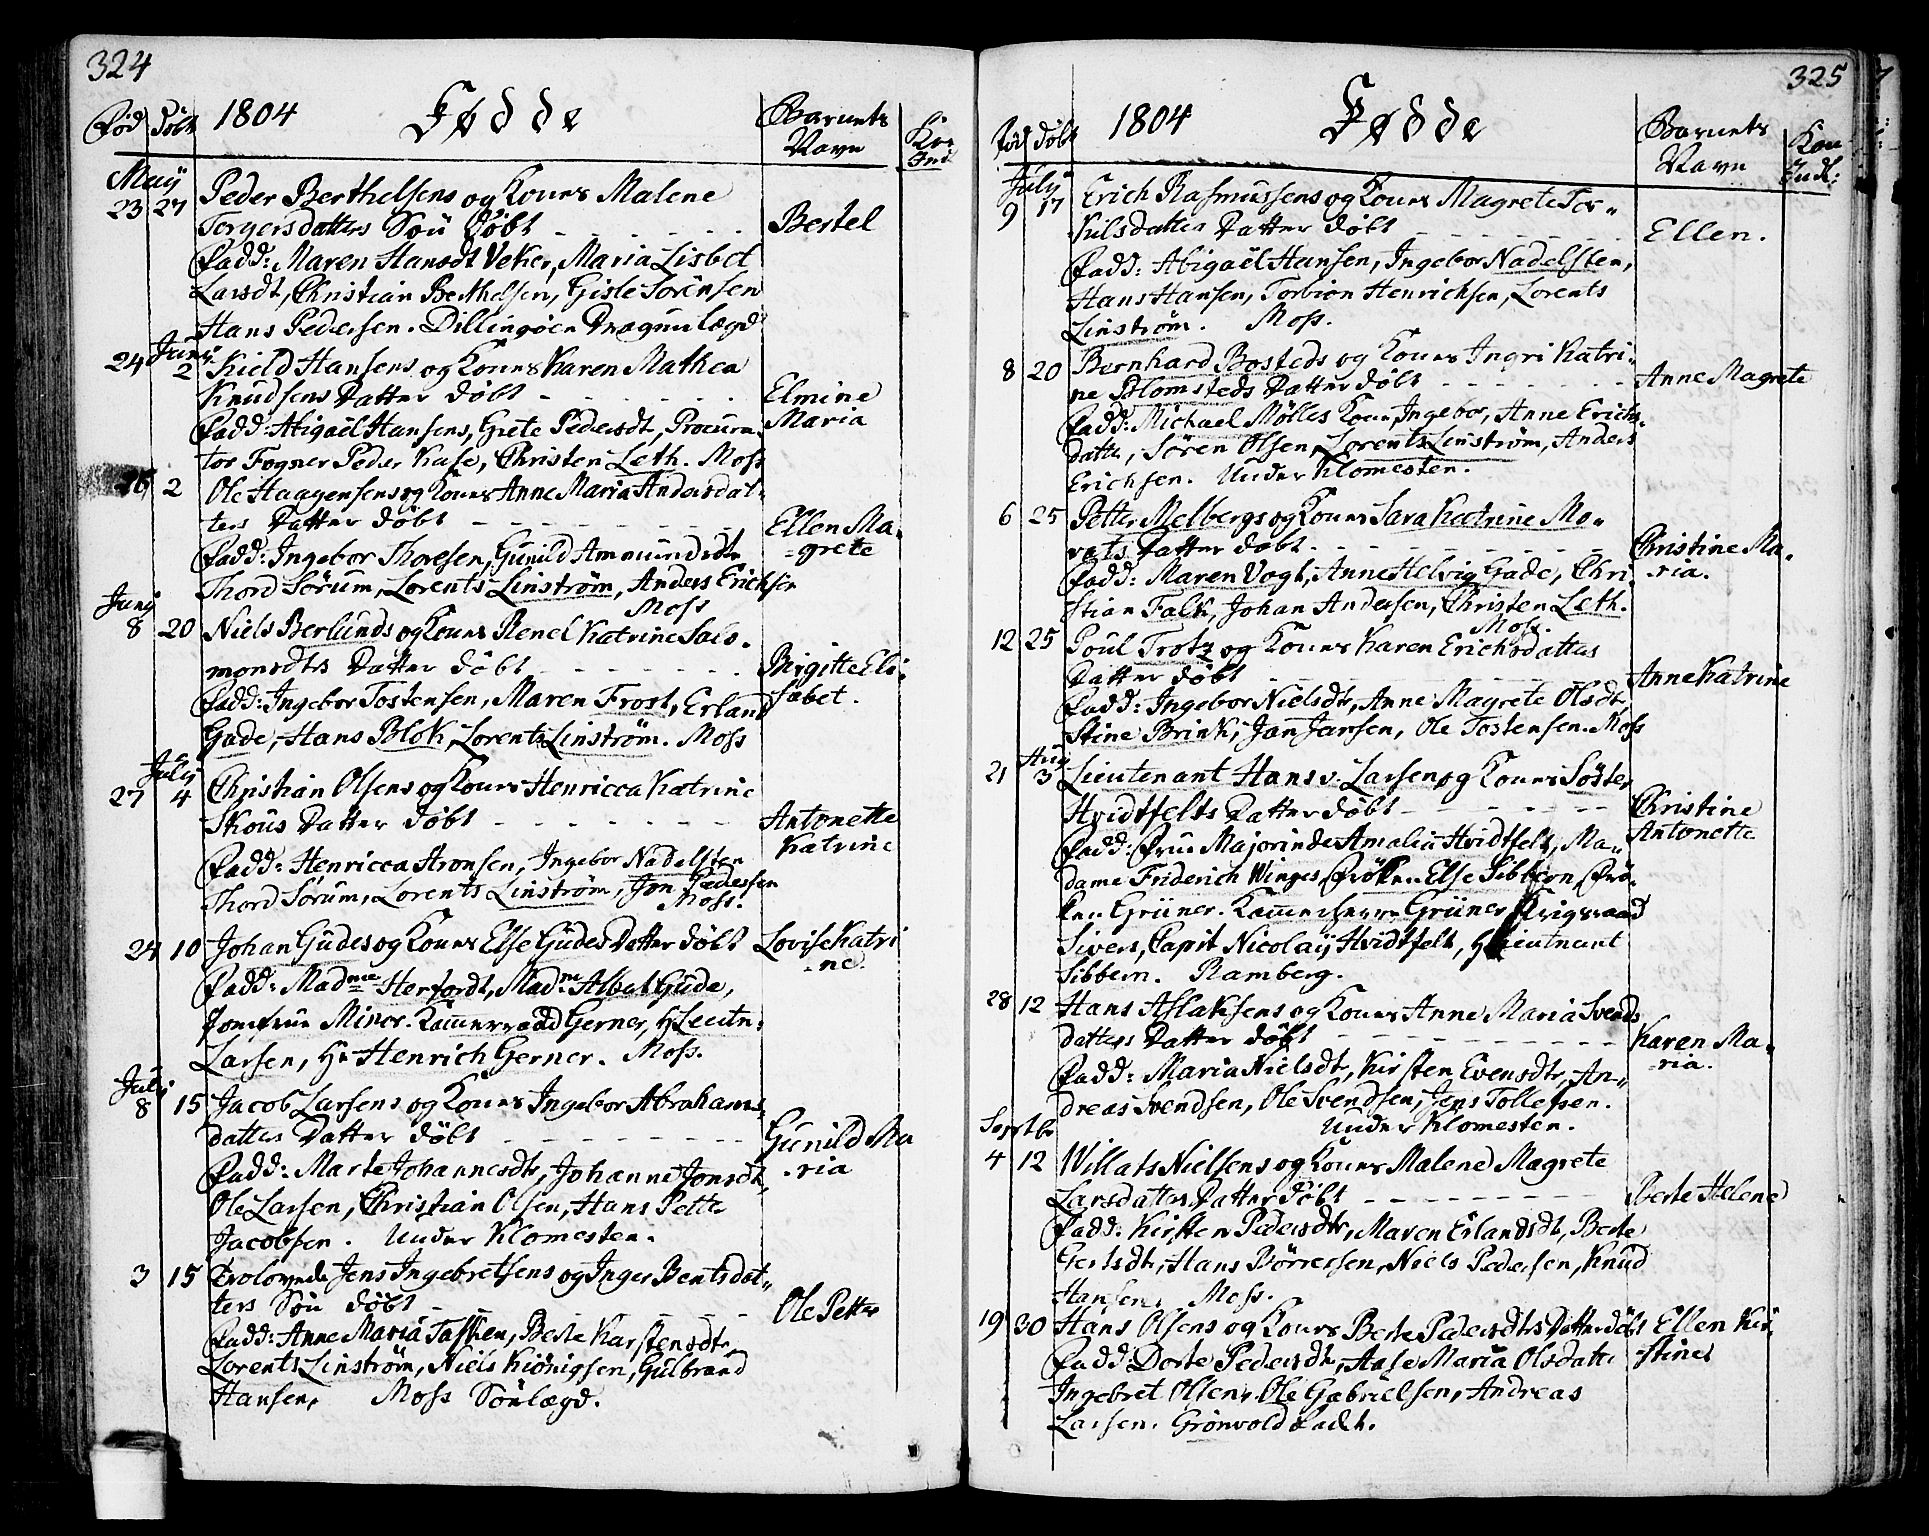 324
1804 Fødde
Fød Døbt Barnets Navn Kon Ind
May
23 27 Peder Berthelsens og Kones Malene
Torgersdatters Søn Døbt - - - - - - Bertel
Fadd: Maren Hansdt Veker, Maria Lisbet
Larsdt, Christian Berthelsen, Gisle Sörensen
Hans Pedersen. Dillingöen Dragunlægd
Juny
24 2 Kield Hansens og Kones Karen Mathea
Knudsens Datter döbt - - - - - - Elmine
Maria
Fadd: Abigaël Hansens, Grete Pedersdt, Procura-
tor Fogner Peder Kase, Christen Leth. Moss
26 2 Ole Haagensens og Kones Anne Maria Andersdat-
ters Datter döbt - - - - - - Ellen Ma-
=grete
Fadd: Ingebor Thoresen, Gunild Ammundsdtr
Thord Sörum, Lorents Linström, Anders Erichsen
Moss
Juny
8 20 Niels Berlunds og Kones Renel Katrine Salo-
monsdtrs Datter döbt - - - - - - Birgitte Eli-
sabet.
Fadd: Ingebor Tostensen, Maren Frost, Erland
Gade, Hans Blok, Lorents Linström. Moss
July
27 4 Christian Olsens og Kones Henricca Katrine
Skous Datter döbt - - - - - - Antonette
Katrine
Fadd: Henricca Aronsen, Ingebor Nadelsten
Thord Sörum, Lorents Linström, Jon Pedersen
Moss.
24 10 Johan Gudes og Kones Else Gudes Datter döbt Lovise Katri
-ne.
Fadd: Madme Herfordt, Madme Albat Gude,
Jomfrue Minor. Kammerraad Gerner, Hr Leutn:
Larsen, Hr Henrich Gerner. Moss.
July
8 15 Jacob Larsens og Kones Ingebor Abrahams-
datters Datter döbt - - - - - - Gunild Ma
-ria
Fadd: Marte Johannesdtr, Johanne Jonsdt,
Ole Larsen, Christian Olsen, Hans Petter
Jacobsen. Under Klomesten.
3 15 Trolovede Jens Ingebretsens og Inger Bentsdat-
ters Søn döbt - - - - - - Ole Petter
Fadd: Anne Maria Tasken, Berte Karstensdtr,
Lorents Linström, Niels Kiönigsen, Gulbrand
Hansen, Moss Sönlægd.
325
1804 Fødde
Fød Døbt Barnets Navn Kon Indl:
July
9 17 Erich Rasmussens og Kones Magrete Tor-
kilsdatters Datter döbt - - - - - - Ellen.
Fadd: Abigaël Hansen, Ingebor Nadelsten,
Hans Hansen, Torbiön Henrichsen, Lorents
Linström. Moss.
8 20 Bernhard Bosteds og Kones Ingri Katri-
ne Blomsteds Datter döbt - - - - - - Anne Magrete
Fadd: Michael Mölles Kone, Ingebor, Anne Erichs-
datter, Sören Olsen, Lorents Linström, Anders
Erichsen. Under Klomesten.
6 25 Petter Melbergs og Kones Sara Katrine Mo-
rats Datter döbt - - - - - - Christine Ma-
-ria.
Fadd: Maren Vogt, Anne Helvig Gade, Chri-
stian Falk, Johan Andersen, Christen Leth.
Moss.
12 25 Poul Trotz og Kones Karen Erichsdatters
Datter döbt - - - - - - Anne Katrine
Fadd: Ingebor Nielsdtr, Anne Magrete Olsdt,
Stine Brink, Jan Jansen, Ole Tostensen. Moss
Aug
21 3 Lieutenant Hans v. Larsen og Kones Söster
Hvidtfelts Datter döbt - - - - - - Christine
Antonette
Fadd: Frue Majorinde Amalia Hvidtfelt, Ma-
dame Friderich Winges, Fröken Else Sibbern, Frö-
ken Grüner. Kammerherre Grüner, Krigsraad
Sivers, Capit Nicolay Hvidtfelt, Hr Lieutnant
Sibbern. Ramberg.
28 12 Hans Aslaksens og Kones Anne Maria Svends
datters Datter döbt - - - - - - Karen Ma-
-ria.
Fadd: Maria Nielsdt, Kirsten Evensdtr, An-
dreas Svendsen, Ole Svendsen, Jens Tollefsen.
Under Klomesten.
Septbr
4 12 Willats Nielsens og Kones Malene Magrete
Larsdatters Datter döbt - - - - - - Berte Helene
Fadd: Kirsten Pedersdtr, Maren Erlandsdt, Berte
Gertsdtr, Hans Börresen, Niels Pedersen, Knud
Hansen, Moss.
19 30 Hans Olsens og Kones Berte Pedersdtrs Datter döbt Ellen Kir-
-stine
Fadd: Dorte Pedersdtr, Aase Maria Olsdatter
Ingebret Olsen, Ole Gabrielsen, Andreas
Larsen. Grönvold Ladt.